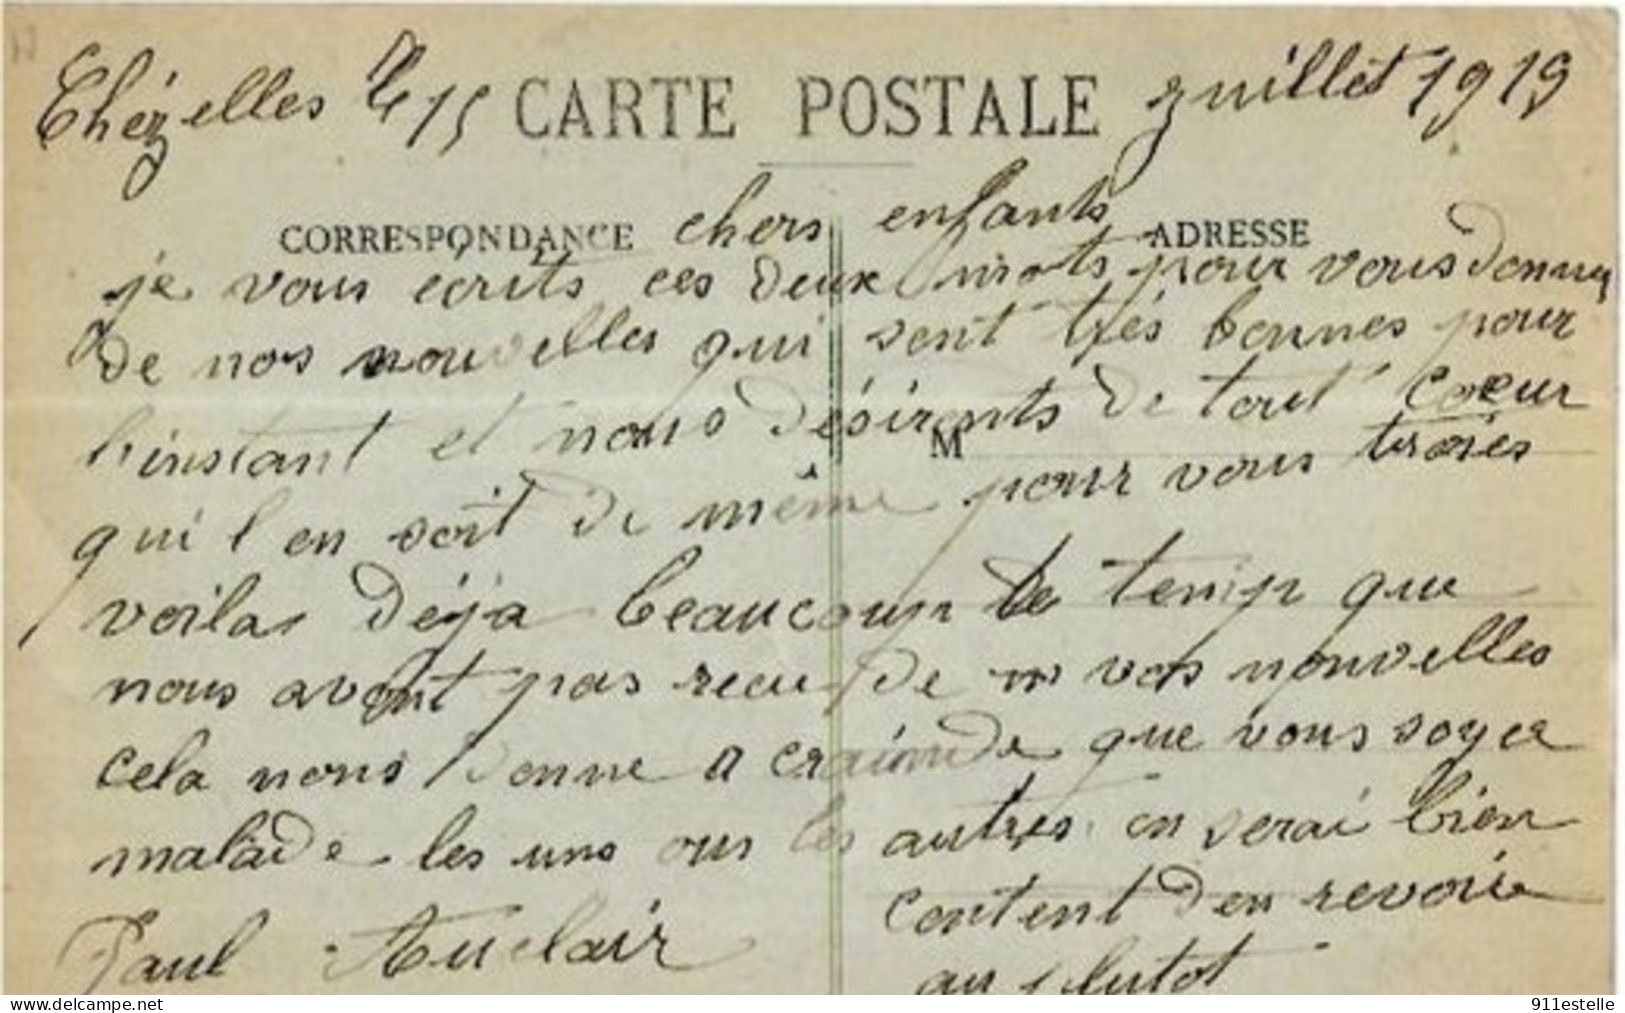 Chézelles le 15 CARTE POSTALE juillet 1919
CORRESPONDANCE chers enfants ADRESSE
je vous écrits ces deux mots pour vous donner
de nos nouvelles qui sont très bonnes pour
l'instant et nous désironts de tout coeur
M
qui l en soit de même pour vous troies
voila déja beaucoup de temp que
nous avont pas recu de vos nouvelles
cela nous donne a crainde que vous soyer
malade les uns ous les autres. on serai bien
content d'en revoir
Paul Auclair
au plutot
911estelle